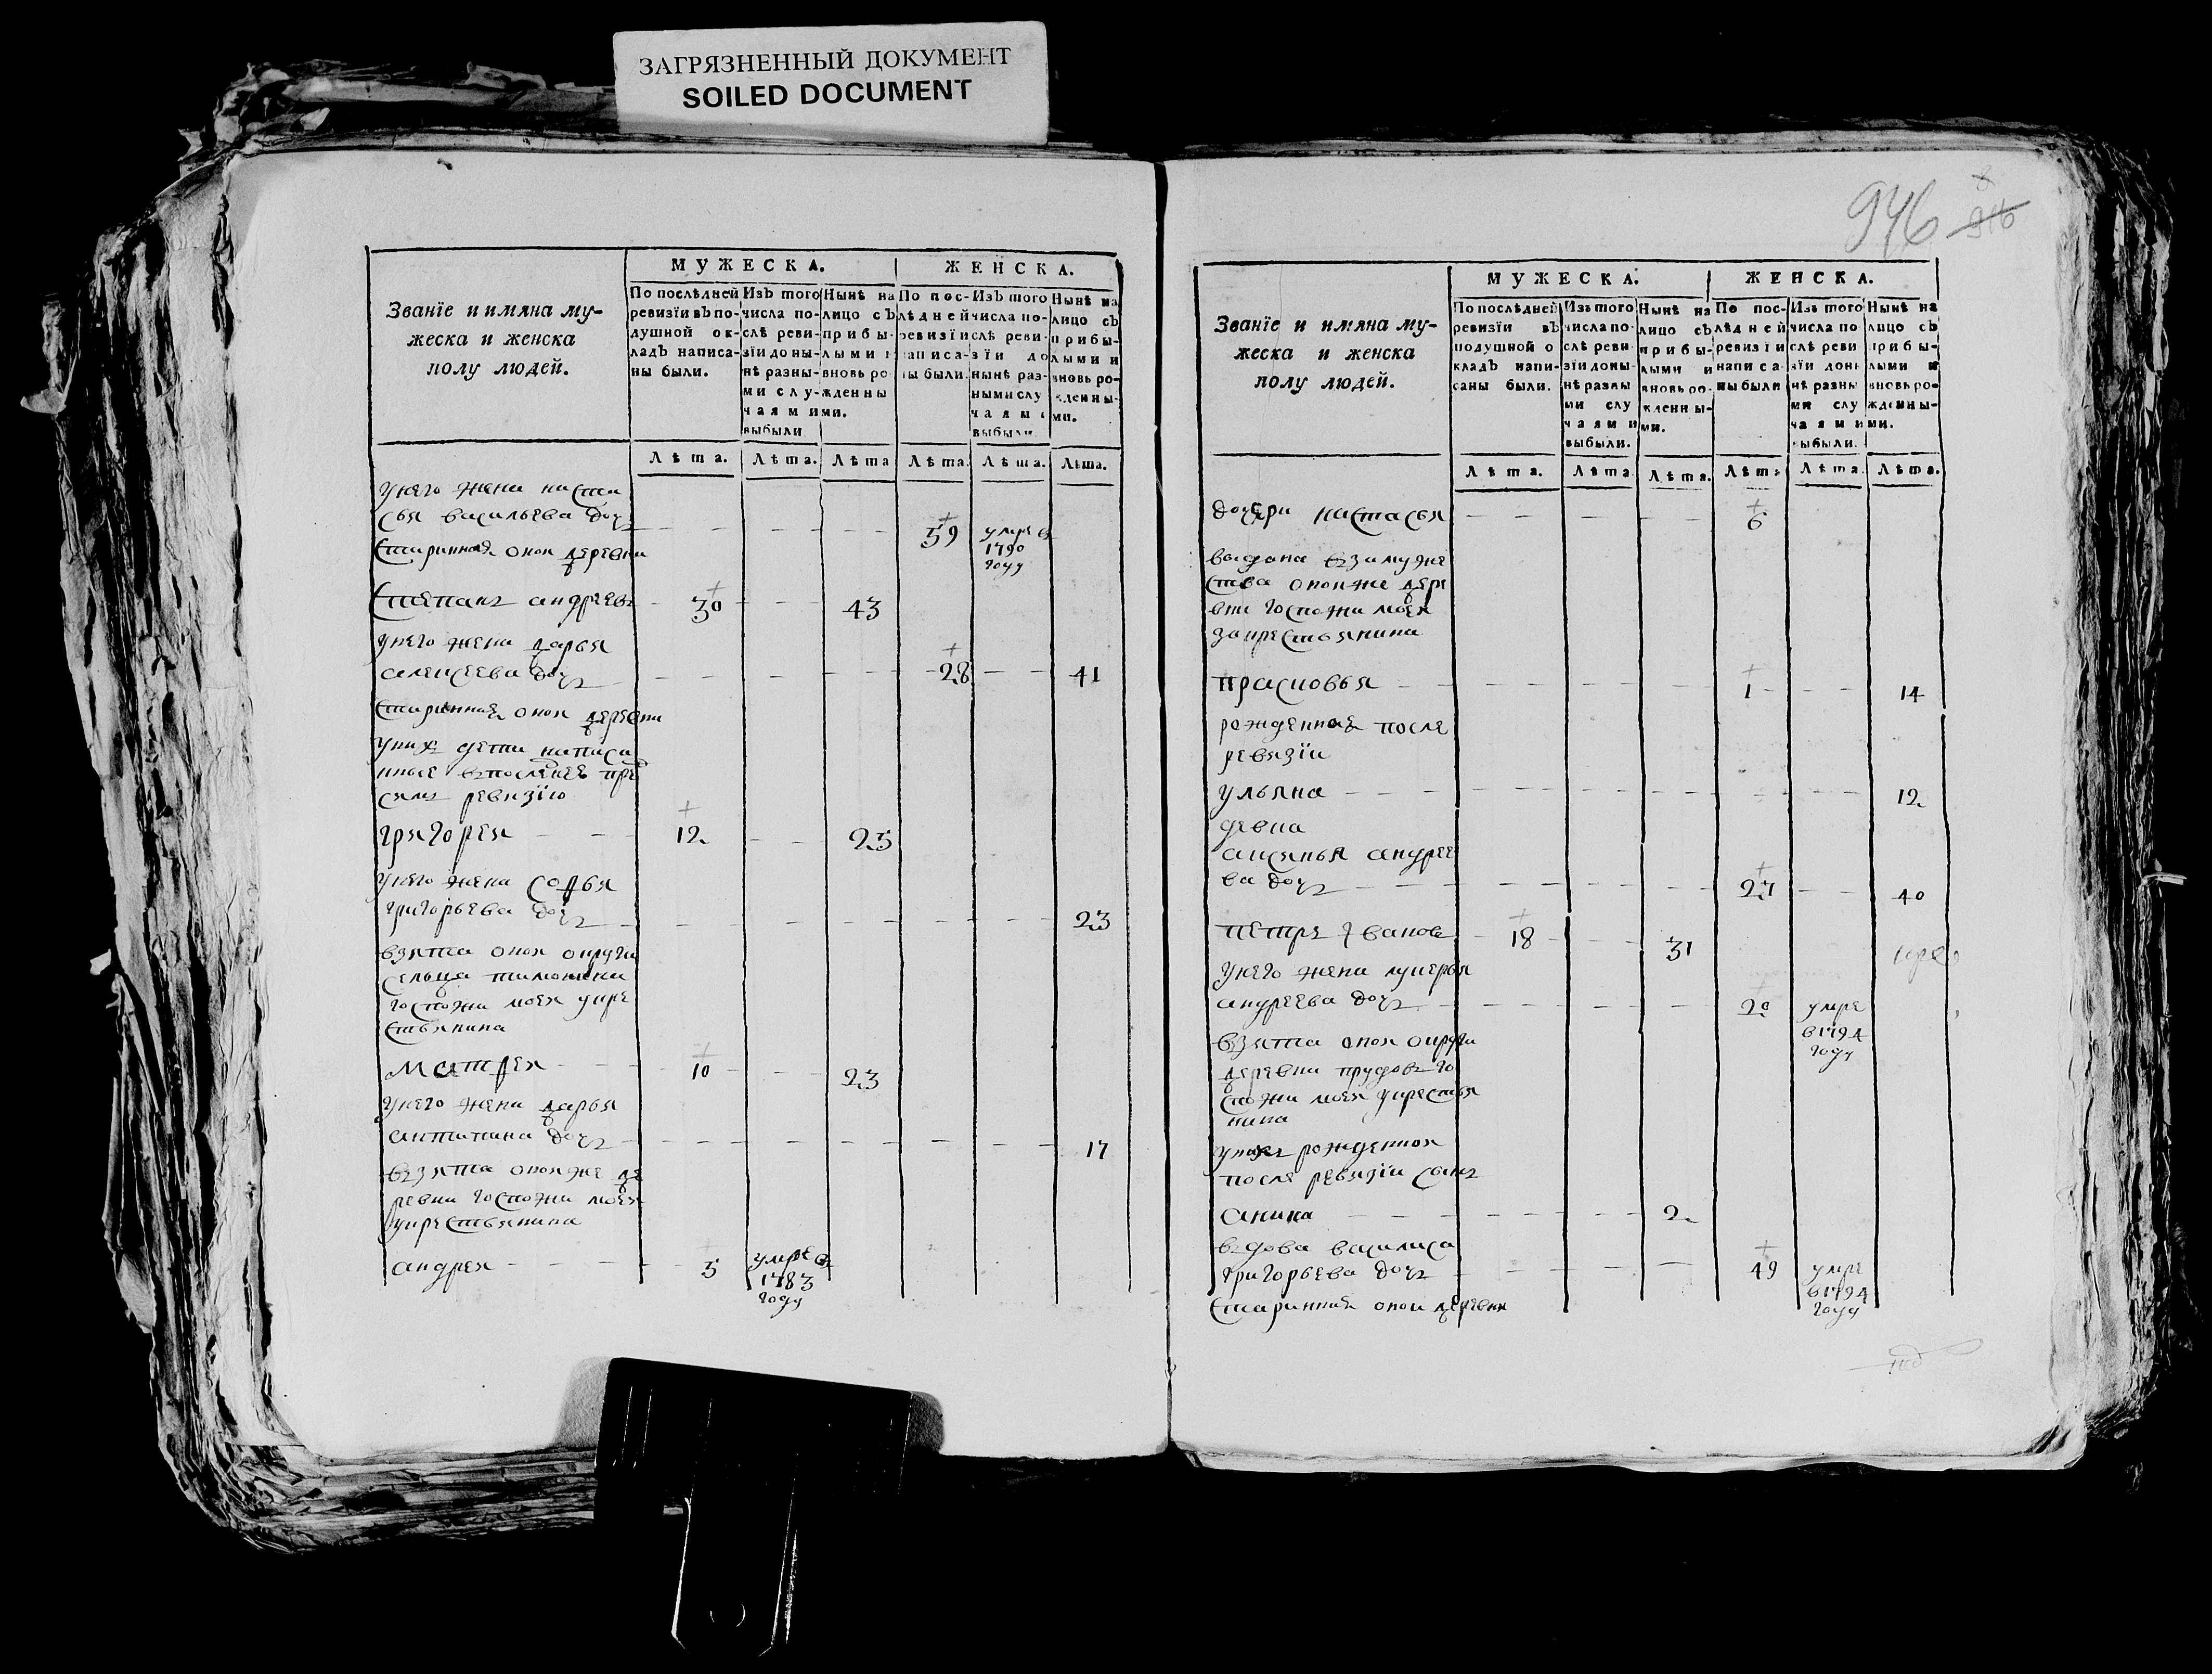 ЗАГРЯЗНЕННЫЙ ДОКУМЕНТ
SOILED DOCUMENT
Званїе и имяна му-
жеска и женска
полу людей.
МУЖЕСКА.
По послѣдней
ревизїи въ по-
душной ок-
ладъ написа-
ны были.
Изъ того
числа по-
слѣ реви-
зїи доны-
нѣ разны-
ми слу-
чаями
выбыли
Нынѣ на
лицо съ
прибы-
лыми и
вновь ро
жденны
ми.
ЖЕНСКА.
По пос-
лѣдней
ревизїи
написа-
ны были.
Изъ того
числа по-
слѣ реви-
зїи до
нынѣ раз-
ными слу
чаями
выбыли.
Нынѣ на
лицо съ
прибы-
лыми и
вновь ро-
жденны-
ми.
Лѣта. Лѣта. Лѣта Лѣта. Лѣта. Лѣта.
унего жена наста
сья васильева доч 59 умре в
1790
году
старинная оной деревни
степанъ андреевъ 30 43
унего жена дарья
алексеева доч 28 41
старинная оной деревни
уних дети написа
нные впоследнею пре
сямъ ревизїю
григорей 12 25
унего жена софья
григорьева доч 23
взята оной округи
сельца тимонкина
госпожи моей укре
стьянина
матфей 10 23
унего жена дарья
антипина доч 17
взята оной же де
ревни госпожи моей
укрестьянина
андрей 5 умре в
1783
году
946 8
916
Званїе и имяна му-
жеска и женска
полу людей.
МУЖЕСКА.
По послѣдней
ревизїи въ
подушной о
кладъ напи-
саны были.
Изъ того
числа по-
слѣ реви
зїи доны-
нѣ разны
ми слу
чаями
выбыли.
Нынѣ на
лицо съ
прибы-
лыми и
вновь ро-
жденны-
ми.
ЖЕНСКА.
По пос-
лѣдней
ревизїи
написа-
ны были
Изъ того
числа по
слѣ реви
зїи донь
нѣ разны
ми слу
чаями
выбыли.
Нынѣ на
лицо съ
прибы-
лыми и
вновь ро-
жденны-
ми.
Лѣта. Лѣта. Лѣта. Лѣта Лѣта. Лѣта.
дочери настасья 6
выдана взамуже
ства оной же дере
вни госпожи моей
закрестьянина
прасковья 1 14
рожденная после
ревизїи
ульяна 12
девка
аксинья андрее
ва доч 27 40
петръ ївановъ 18 31
унего жена лукерья
андреева доч 20 умре
в1794
году
взята оной округи
деревни прудовъ го
спожи моей укрестья
нина
унихъ рожденной
после ревизїи сынъ
аника 2
вдова василиса
григорьева доч 49 умре
в1794
году
старинная оной деревни